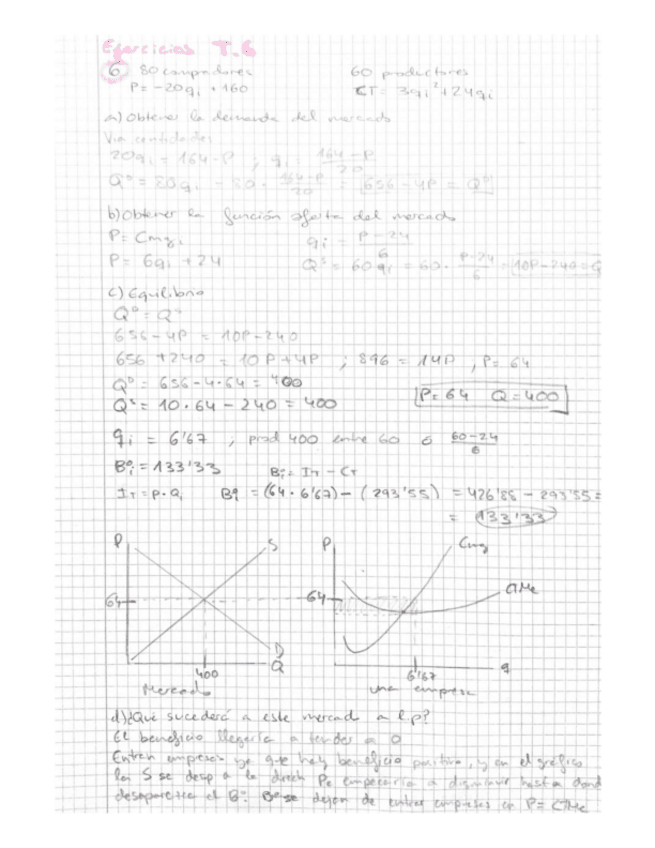 Ejercicios T.6
6 80 compradores 60 productores
P= -20qi + 160 CT= 3qi² + 24qi
a) Obtener la demanda del mercado
Vía cantidades
20qi = 164-P ; qi = 164-P / 20
Q^D = 80qi = 80 · 164-P / 20 = 656-4P = Q^D
b) Obtener la función oferta del mercado
P= Cmgi qi = P-24 / 6
P= 6qi + 24 Q^S = 60qi = 60 · P-24 / 6 = 10P-240 = Q
c) Equilibrio
Q^D = Q^S
656-4P = 10P-240
656 + 240 = 10P+4P ; 896 = 14P , P= 64
Q^D = 656-4·64 = 400
Q^S = 10·64 - 240 = 400 P= 64 Q= 400
qi = 6'67 , prod 400 entre 60 ó 60-24 / 6
Bºi = 133'33 Bºi = IT - CT
IT = P·Qi Bºi = (64·6'67) - (293'55) = 426'88 - 293'55 =
= 133'33
P S P Cmg
64 64 CTMe
D
400 Q 6'67 q
Mercado una empresa
d) ¿Qué sucederá a este mercad a l.p?
El beneficio llegaría a tender a 0
Entran empresas ya que hay beneficio positivo, y en el gráfico
la S se desp a la derch Pe empezaría a disminuir hasta dond
desaparezca el Bº. se dejan de entrar empresas en P= CTMe